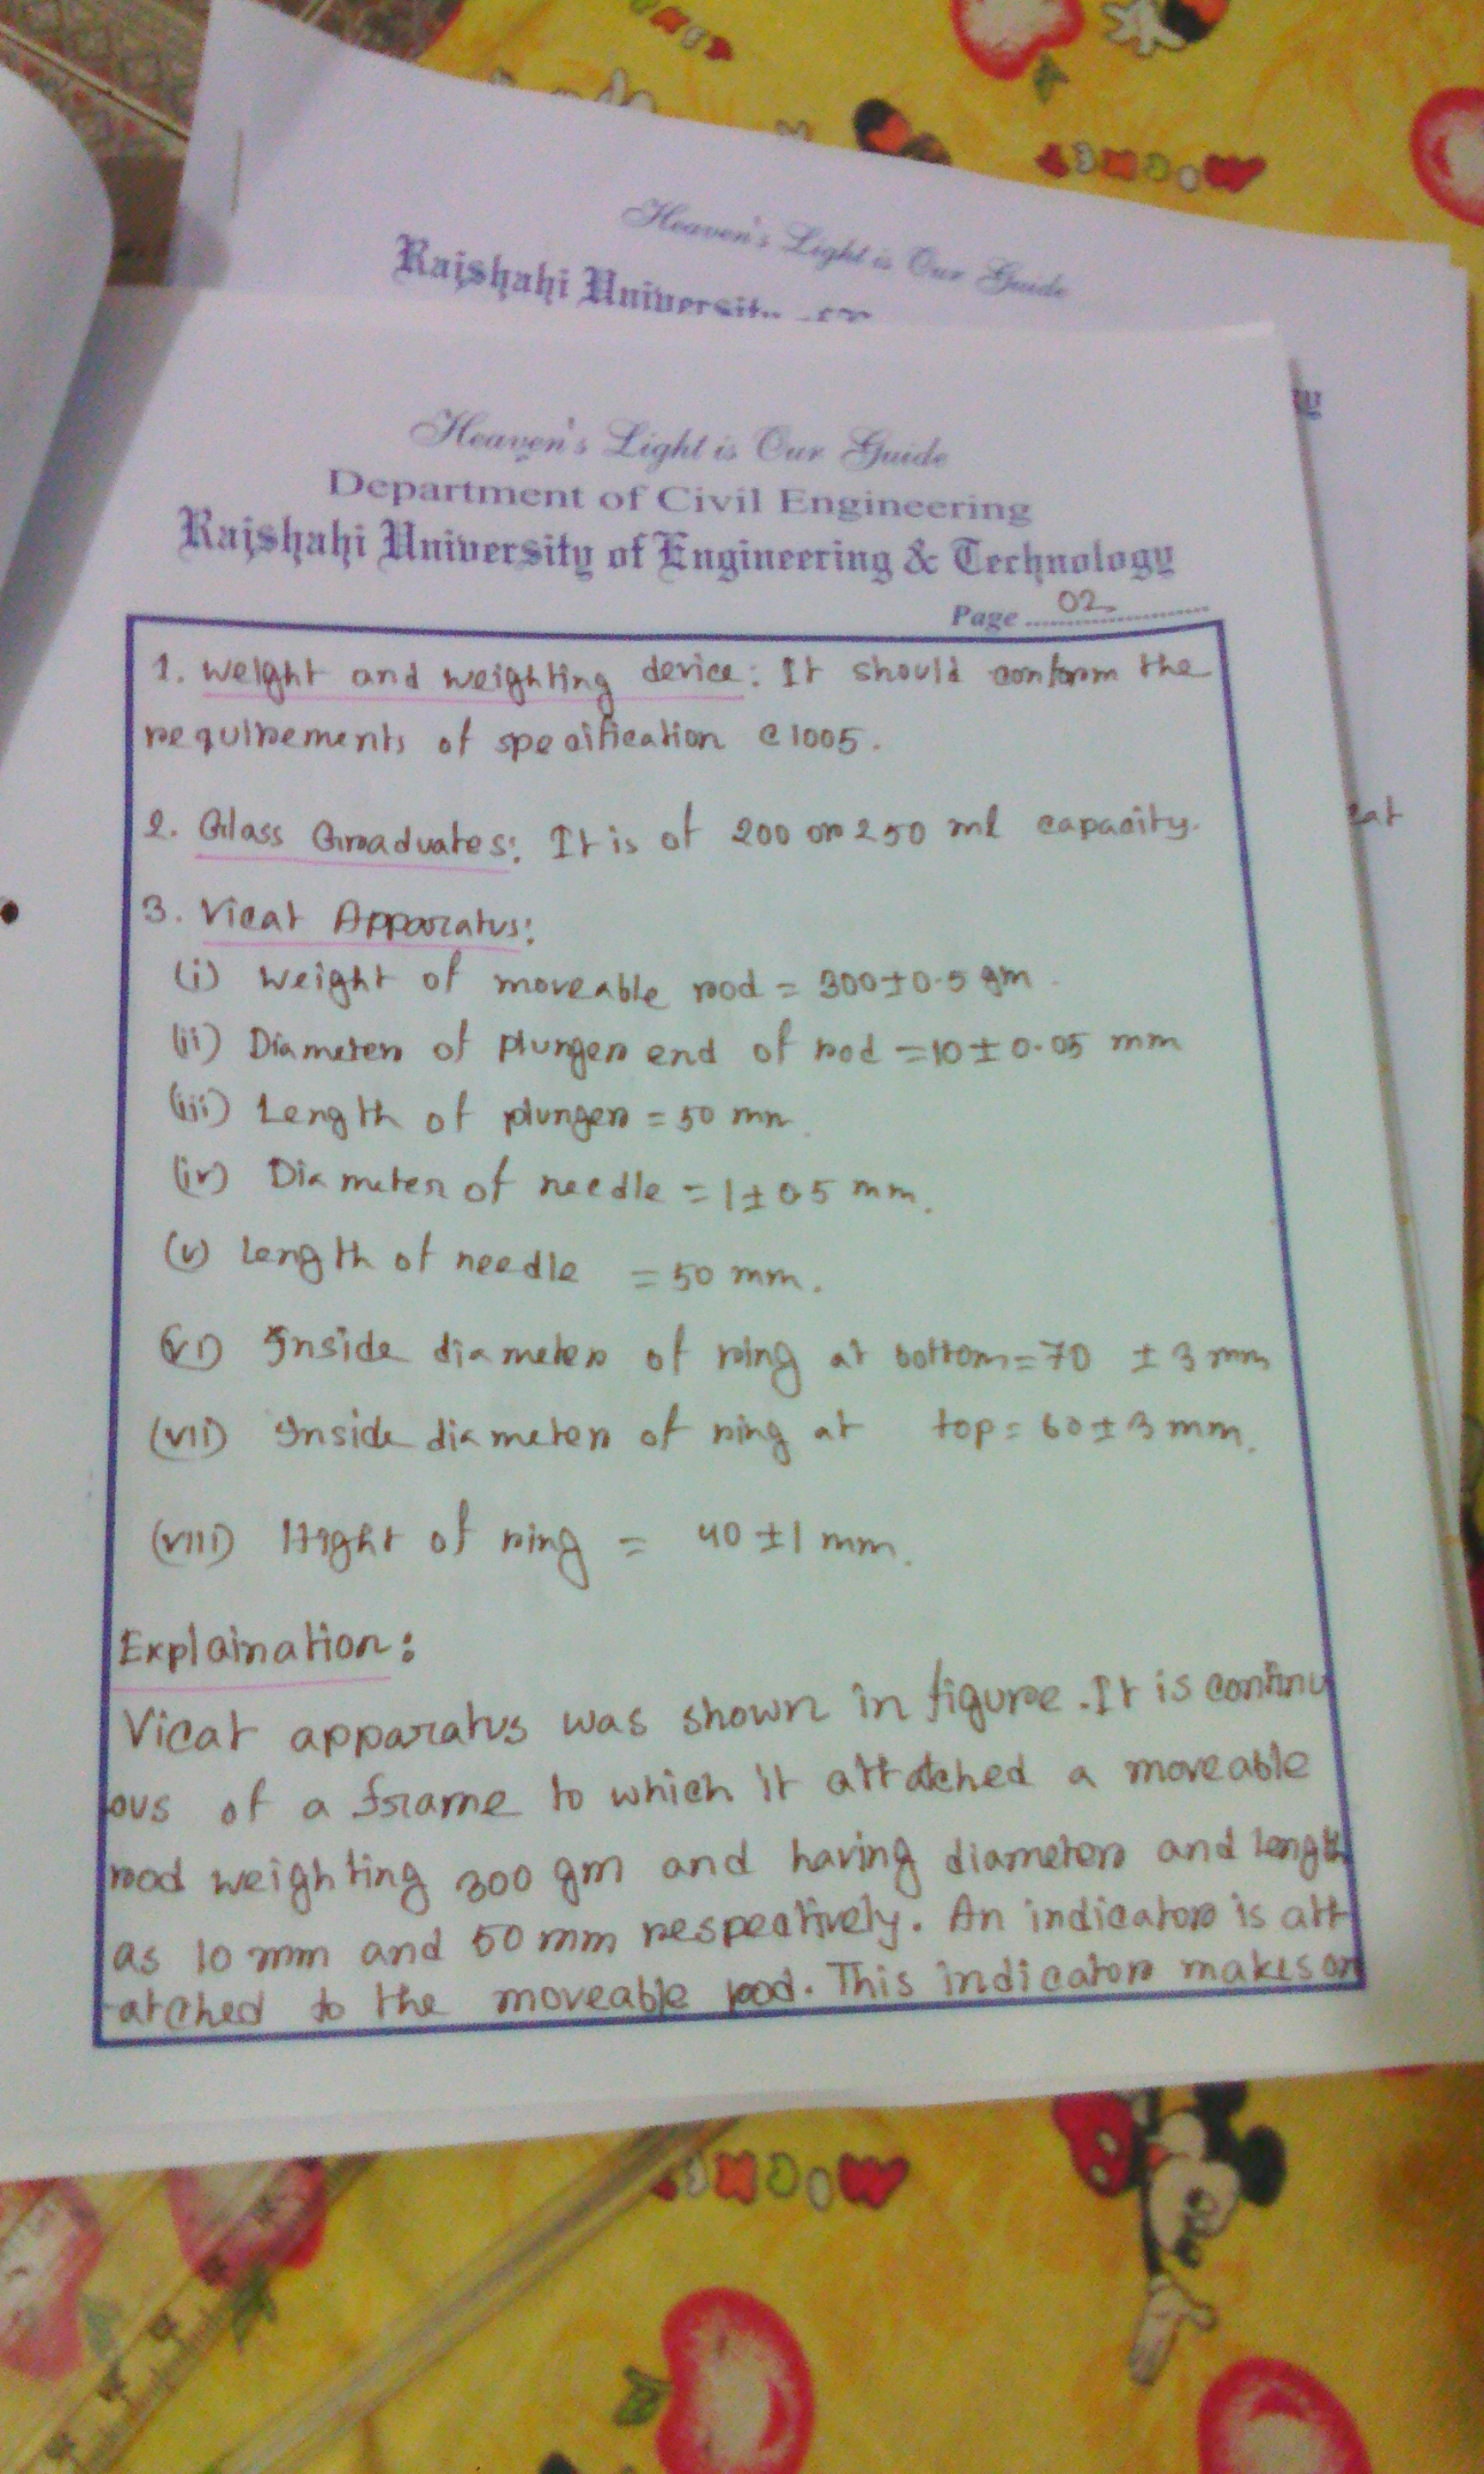 Heaven's Light is Our Guide
Rajshahi University
Heaven's Light is Our Guide
Department of Civil Engineering
Rajshahi University of Engineering & Technology
Page 02
1. Weight and weighting device: It should conform the
requirements of specification C1005.
2. Glass Graduates: It is of 200 or 250 ml capacity.
eat
3. Vicat Apparatus:
(i) Weight of moveable rod = 300±0.5 gm.
(ii) Diameter of plunger end of rod = 10 ± 0.05 mm
(iii) Length of plunger = 50 mm
(iv) Diameter of needle = 1 ± 0.5 mm.
(v) Length of needle = 50 mm.
(vi) Inside diameter of ring at bottom = 70 ± 3 mm
(vii) Inside diameter of ring at top = 60 ± 3 mm.
(viii) Hight of ring = 40 ±1 mm.
Explaination:
Vicat apparatus was shown in figure. It is continu
ous of a frame to which it attatched a moveable
rod weighting 300 gm and having diameter and length
as 10 mm and 50 mm respectively. An indicator is att
atched to the moveable rod. This indicator makes on